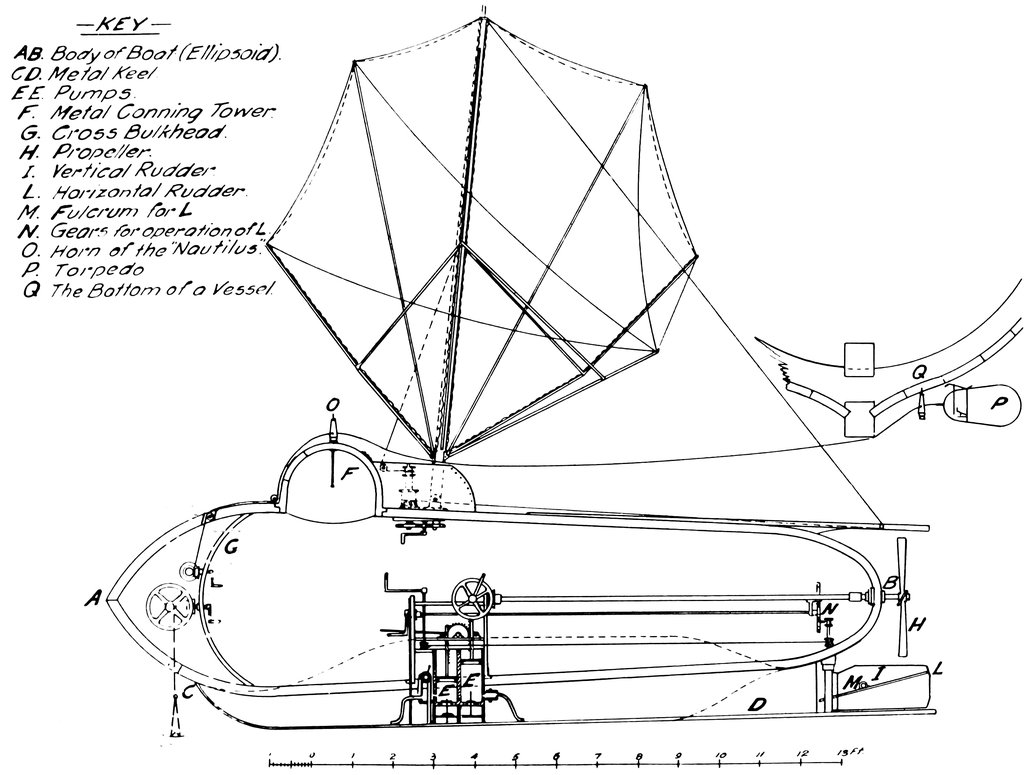 —KEY—
AB. Body of Boat (Ellipsoid).
CD. Metal Keel
EE. Pumps.
F. Metal Conning Tower
G. Cross Bulkhead.
H. Propeller.
I. Vertical Rudder
L. Horizontal Rudder.
M. Fulcrum for L
N. Gears for operation of L.
O. Horn of the "Nautilus."
P. Torpedo
Q The Bottom of a Vessel.
Q
P
O
F
G
A
B
N
H
C
E E
M I L
D
1 0 1 2 3 4 5 6 7 8 9 10 11 12 13 Ft